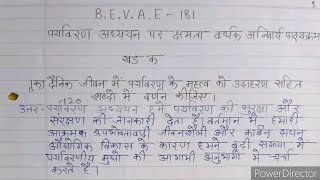 B.E.V.A.E - 181
पर्यावरण अध्ययन पर क्षमता वर्धक अनिवार्य पाठ्यक्रम
खंड क
(क) दैनिक जीवन में पर्यावरण के महत्व को उदाहरण सहित
120 शब्दों में वर्णन कीजिए।
उत्तर- पर्यावरण अध्ययन से पर्यावरण की सुरक्षा और
संरक्षण की जानकारी देता है वर्तमान में हमारी
आक्रमक उपभोक्तावादी जीवनशैली और कार्बन सघन
औद्योगिक विकास के कारण हमने बड़ी संख्या में
पर्यावरणीय मुद्दों की आगामी अनुभागों में चर्चा
करते हैं।
PowerDirector